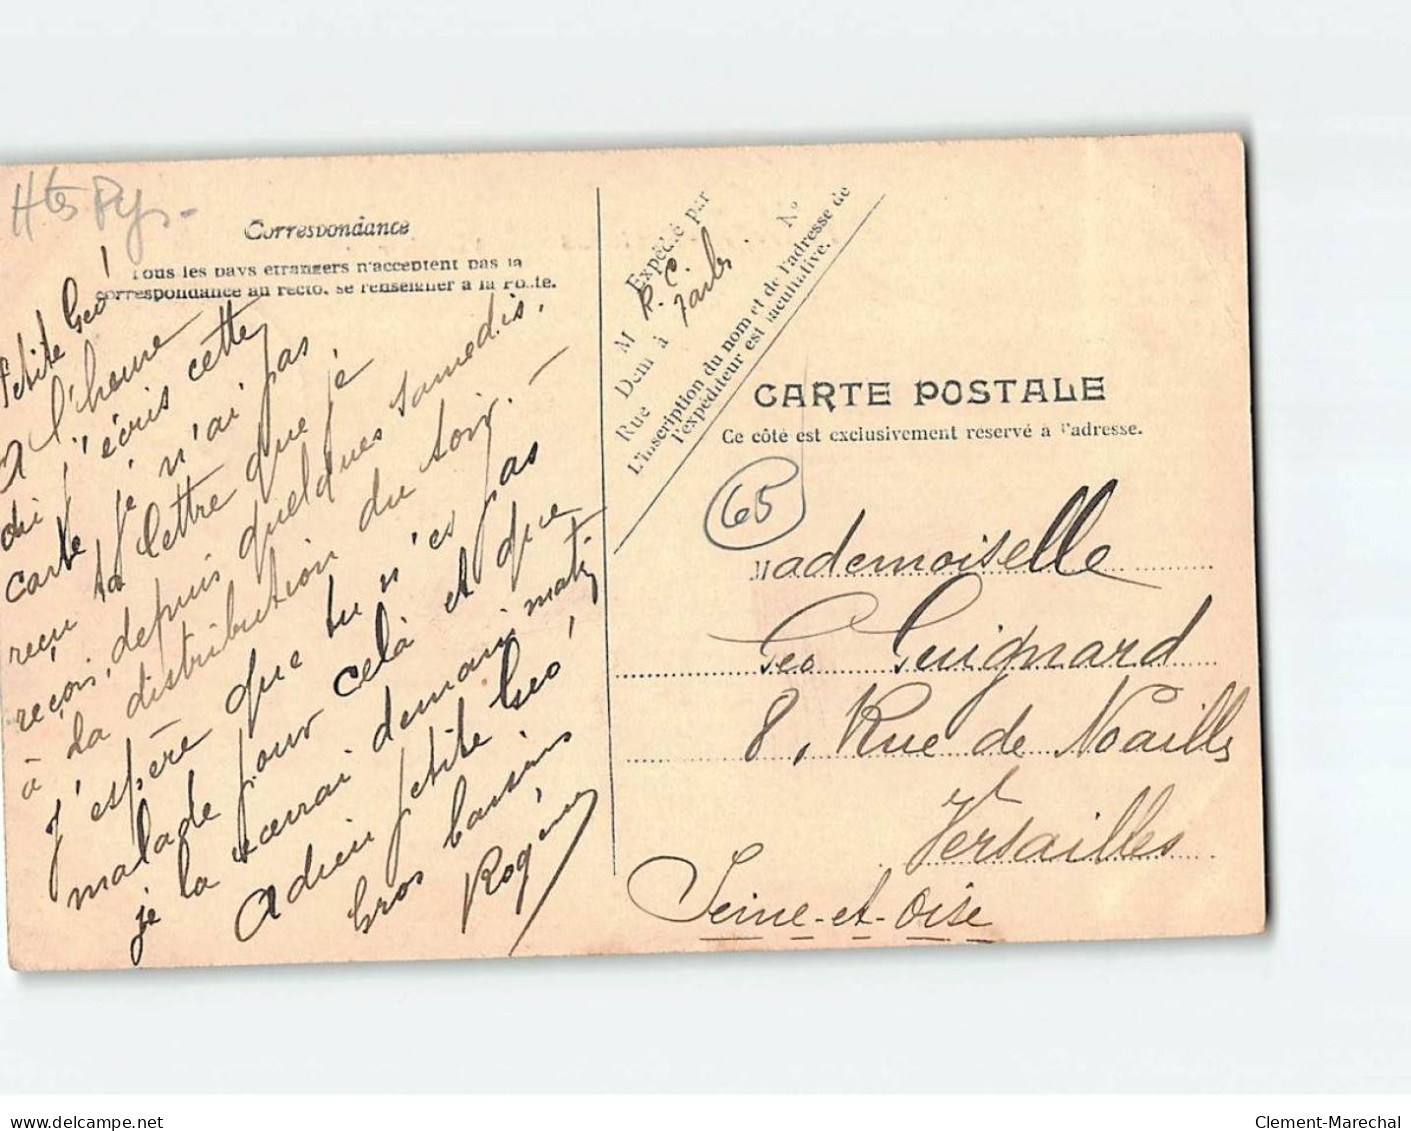 Htes Pys-
Correspondance
Tous les pays étrangers n'acceptent pas la
correspondance au recto, se renseigner à la Poste.
Petite Géo!
A l'heure
où j'écris cette
carte je n'ai pas
reçu ta lettre que je
reçois, depuis quelques samedis,
à la distribution du soir. —
J'espère que tu n'es pas
malade pour celà et que
je la aurai demain matin
Adieu petite Géo,
Gros baisers
Roger
Expédié par
M R. C. N°
Dem à Tarbes
Rue
L'inscription du nom et de l'adresse de
l'expéditeur est facultative.
CARTE POSTALE
Ce côté est exclusivement reservé à l'adresse.
65
Mademoiselle
Géo Guignard
8, Rue de Noailles
Versailles
Seine-et-Oise
delcampe.net
Clement-Marechal